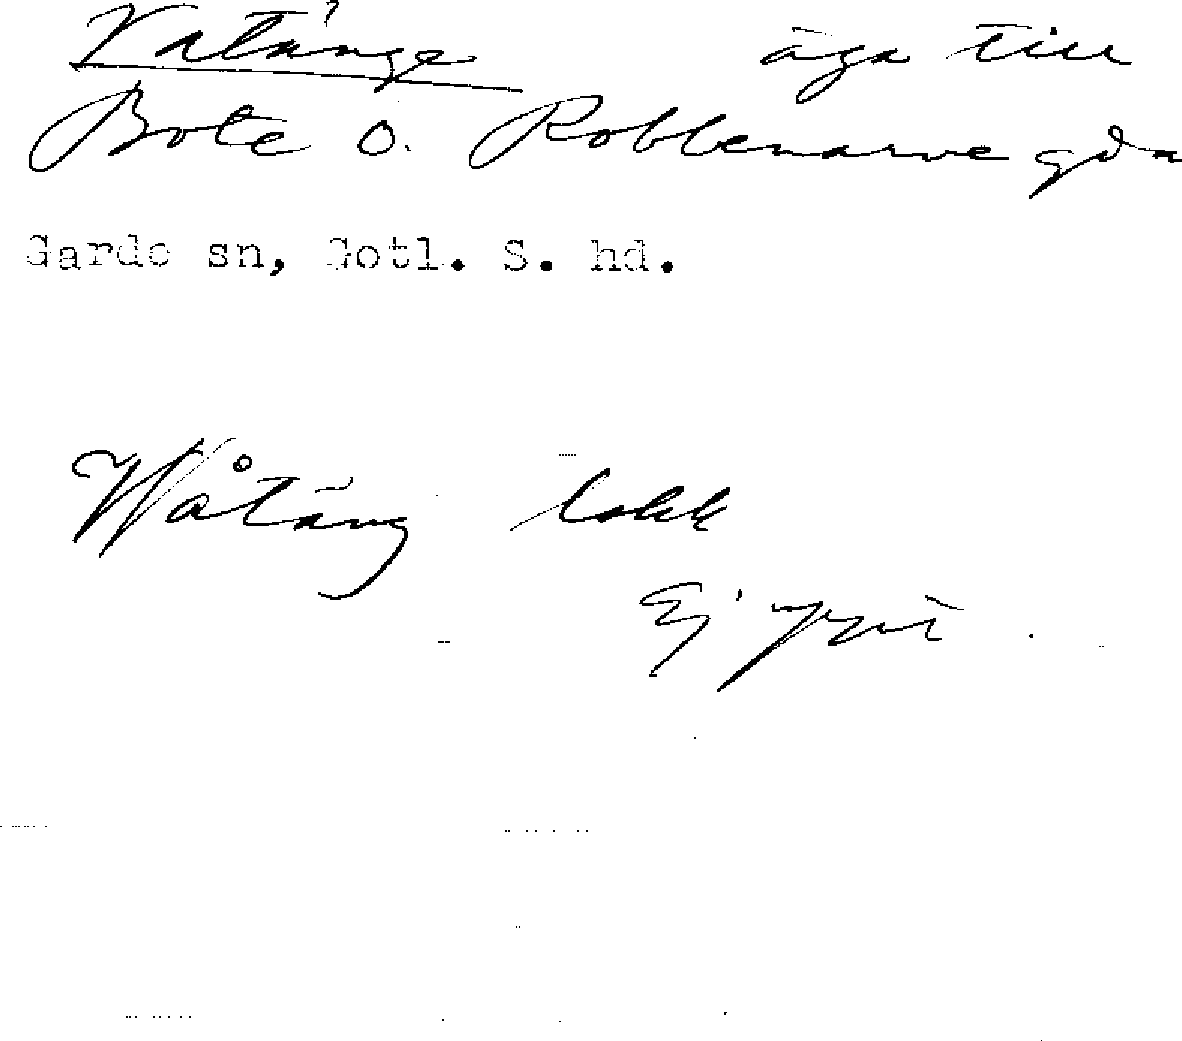 Vatänge äga till
Bote o. Robbenarve gda
Garde sn, Gotl. S. hd.
Wåtäng lokk
Ej